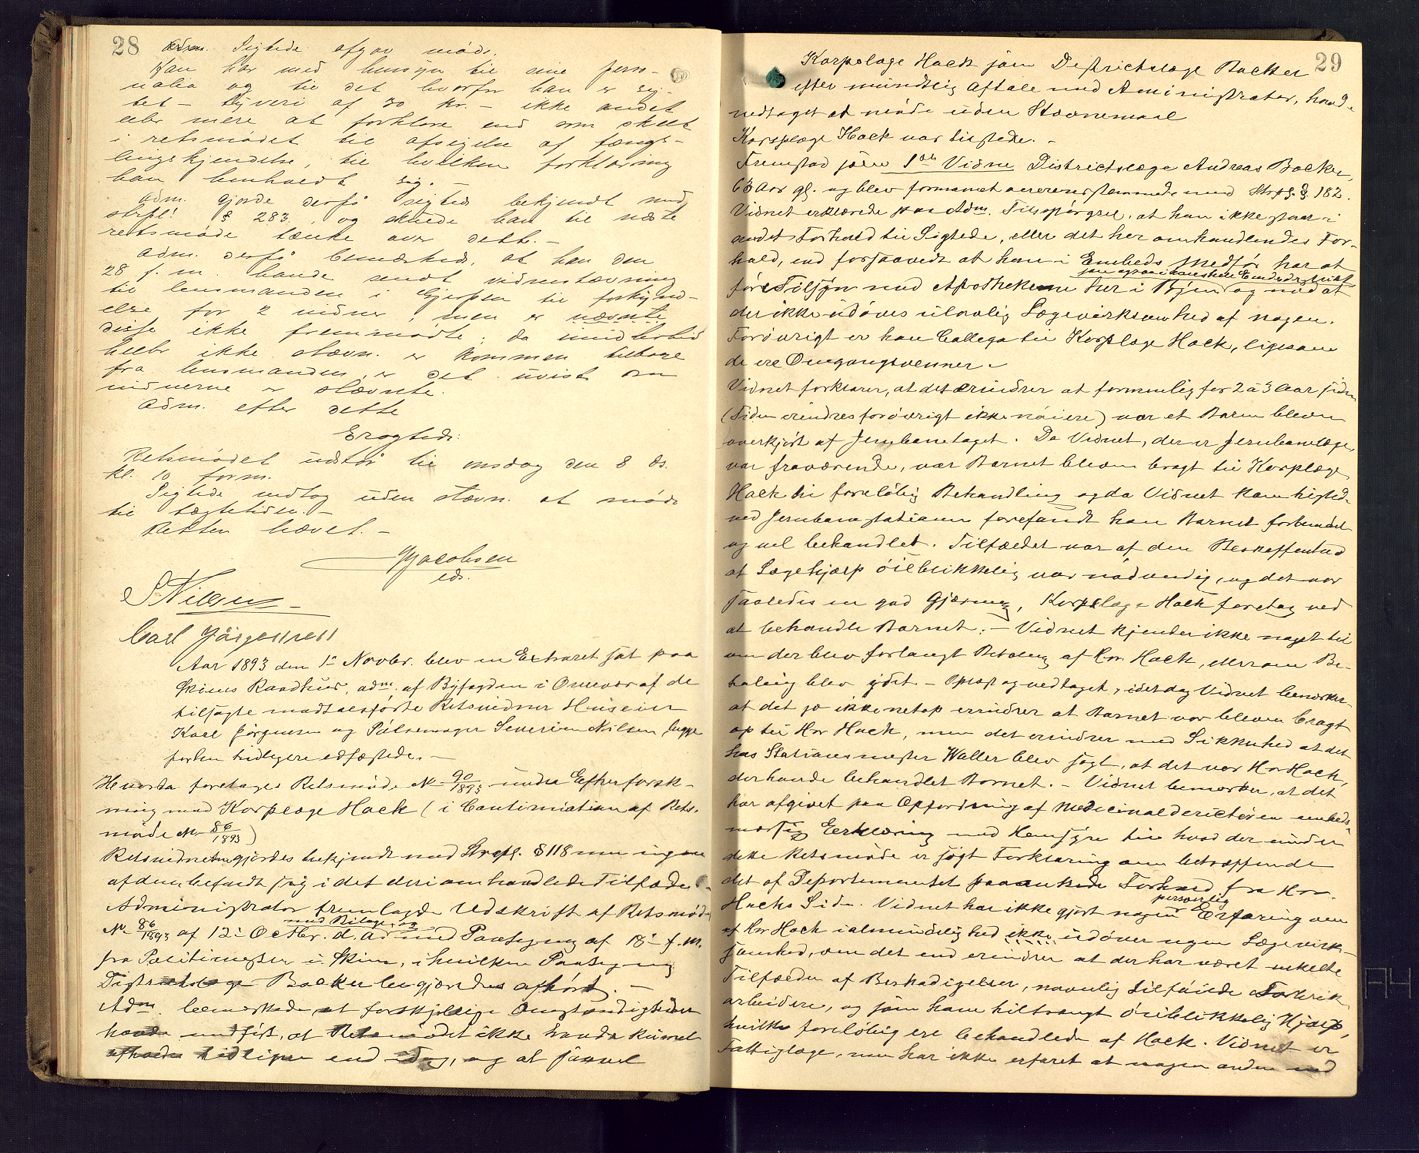 28
Adm. Sigtede afgav møde.
Kan har med hensyn til sine perso-
nalia og til det hvorfor han er sig-
tet - tyveri af 30 kr. - ikke andet
eller mere at forklare end som skeet
i retsmødet til afsigelse af fængs-
lingskjendelse, til hvilken forklaring
han henholdt sig. -
Adm. gjorde derfor sigtede bekjendt med
strfl. § 283, og skulde han til næste
retsmøde tænke over dette. -
Adm. derfor bemærked, at han den
28 f. m. havde sendt vidnestævning
til lensmanden i Gjerpen til forkynd-
else for 2 vidner, men er nævnte
disse ikke fremmødte; da imidlertid
heller ikke stævn. er kommen tilbage
fra lensmanden, er det uvist om
vidnerne er stævnte.
Adm. efter dette
Eragted:
Retsmødet udstår til onsdag den 8 ds.
kl. 10 form.
Sigtede vedtog uden stævn. at møde
til tægtetiden. -
Retten hævet. -
Jacobsen
cds.
S Nilsen
Carl Jörgensen
Aar 1893 den 1ste Novbr. blev en Extraret sat paa
Skiens Raadhus, adm. af Byfogden i Overvær af de
tilsagte mødtoesførte Retsvidner Huseier
Karl Jörgensen og Pølsemager Severin Nilsen begge
forhen tidligere edfæstede. -
Hvorda foretoges Retsmøde No 90/1893 under Efterforsk-
ning mod Korpslæge Hock (i Continuation af Rets-
møde No 86/1893)
Retsvidnerne gjordes bekjendt med Strpl. § 118 men ingen
af dem befandt sig i det deri omhandlede Tilfælde. -
Administrator fremlagde Udskrift af Retsmøde
med Bilag
No 86/1893 af 12te Octbr. d. A. med Paategning af 18de f. M.
fra Politimester i Skien, i hvilken Paategning
Distriktslæge Backer begjærdes afhørt. -
Adm. bemærkede, at forskjellige Omstændigheder
havde medført, at Retsmødet ikke havde kunnet
afholdes tidligere end idag, og at saavel
29
Korpslæge Hock som Districhtslæge Backer
efter mundtlig Aftale med Aministrator, havde
vedtaget at møde uden Stævnemaal
Korpslæge Hock var tilstede. -
Fremstod som 1ste Vidne Districtslæge Andreas Backer,
63 Aar gl. og blev formanet overensstemmende med Strpl. § 182.
Vidnet erklærede paa Adm. Tilspørgsel, at han ikke staar i
andet Forhold til Sigtede, eller det her omhandlendes For-
hold, end forsaavidt at han i Embeds Medfør har at
føre Tilsyn med Apothekerne her i Byen og med at
der ikke udøves ulovlig Lægevirksomhed af nogen.
Forøvrigt er han Collega til Korpslæge Hock, ligesom
de ere Omgangsvenner. -
Vidnet forklarer, at det erindrer at formenlig for 2 à 3 Aar siden
(Tiden erindres forøvrigt ikke nøiere) var et Barn bleven
overkjört af Jernbanetoget. Da Vidnet, der er Jernbanelæge
var fraværende, var Barnet bleven bragt til Korpslæge
Hock til foreløbig Behandling og da Vidnet kom tilsted
ved Jernbanestationen forefandt han Barnet forbundet
og vel behandlet. Tilfældet var af den Beskaffenhed
at Lægehjælp öieblikkelig var nødvendig, og det var
saaledes en god Gjærning, Korpslæge Hock foretog ved
at behandle Barnet. - Vidnet kjender ikke noget til
om der blev forlangt Betaling af Hr Hock, eller om Be-
taling blev ydet. - Oplæst og vedtaget, idet dog Vidnet bemærker
at det jo ikke netop erindrer at Barnet var bleven bragt
op til Hr Hock, men det erindrer med Sikkerhed at det
hos Stationsmester Waller blev sagt, at det var Hr Hock,
der havde behandlet Barnet. - Vidnet bemærker, at det
har afgivet paa Opfordring af Medicinaldirectøren embeds-
mæssig Erklæring med Hensyn til hvad der under
dette Retsmøde er søgt Forklaring om betræffende
det af Departementet paaankede Forhold, fra Hr
personlig
Hocks Side. Vidnet har ikke gjort nogen Erfaring om
at Hr Hock i almindelighed ikke udøver egen Lægevirk-
somhed, om det end erindrer at der har været enkelte
Tilfælde af Beskadigelser, navnlig tilføiede Fabrik-
arbeidere, og som have tiltrængt öieblikkelig Hjælp,
hvilke foreløbig ere behandlede af Hock. Vidnet er
Fattiglæge, men har ikke erfaret at nogen anden end